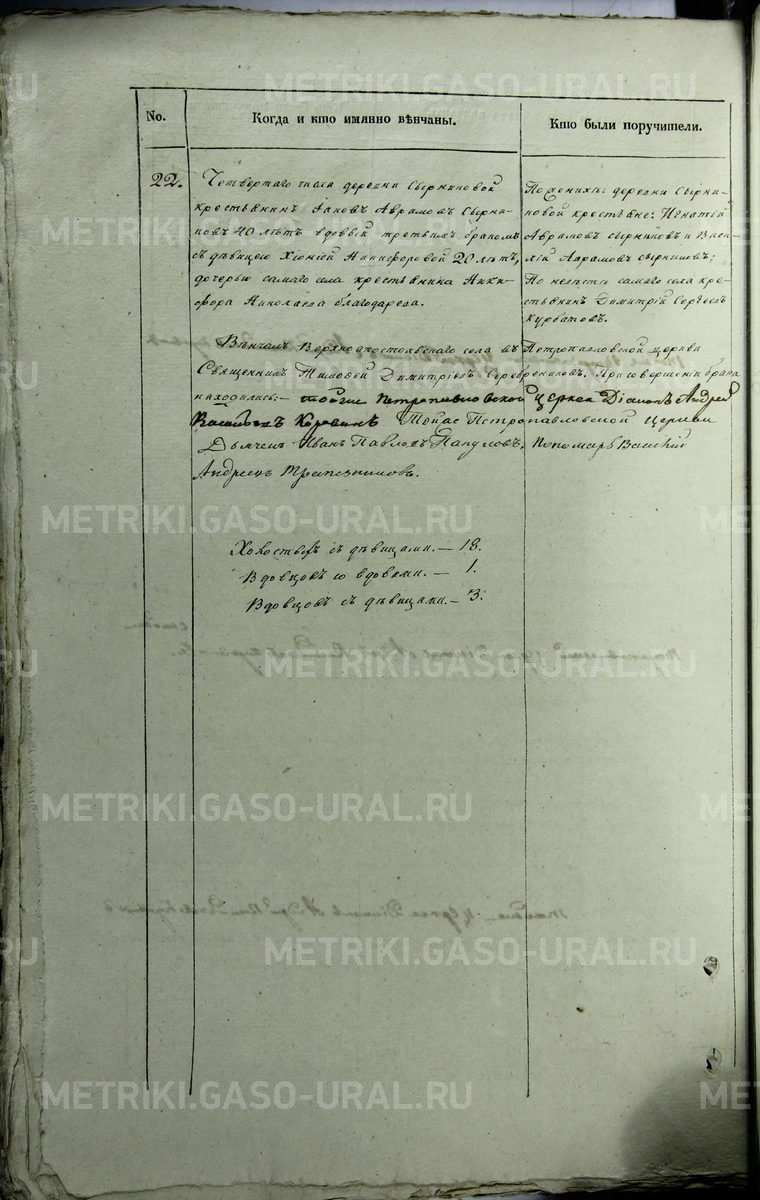 No.
Когда и кто имянно вѣнчаны.
Кто были поручители.
22.
Четвертаго числа деревни Сырниковой
крестьянинъ Іаковъ Аврамовъ Сырни-
ковъ 40 лѣтъ вдовый третьимъ бракомъ
съ дѣвицею Хіоніей Никифоровой 20 лѣтъ,
дочерью самаго села крестьянина Ники-
фора Николаева
По женихѣ: деревни Сырни-
ковой крестьяне: Игнатій
Аврамовъ Сырниковъ и Васи-
лій Аврамовъ Сырниковъ;
По невѣстѣ самаго села кре-
стьянинъ Димитрій Сергѣевъ
Курбатовъ.
Вѣнчалъ села въ Петропавловской церкви
Священникъ Тимофей Димитріевъ Серебренниковъ. При совершеніи брака
находились:— тойже Петропавловской церкви Діаконъ Андрей
Коровинъ Тойже Петропавловской церкви
Дьячекъ Иванъ Павловъ Пономарь Василій
Андреевъ Трапезниковъ.
Холостыхъ съ дѣвицами.— 18.
Вдовцовъ со вдовами.— 1.
Вдовцовъ съ дѣвицами.— 3.
METRIKI.GASO-URAL.RU